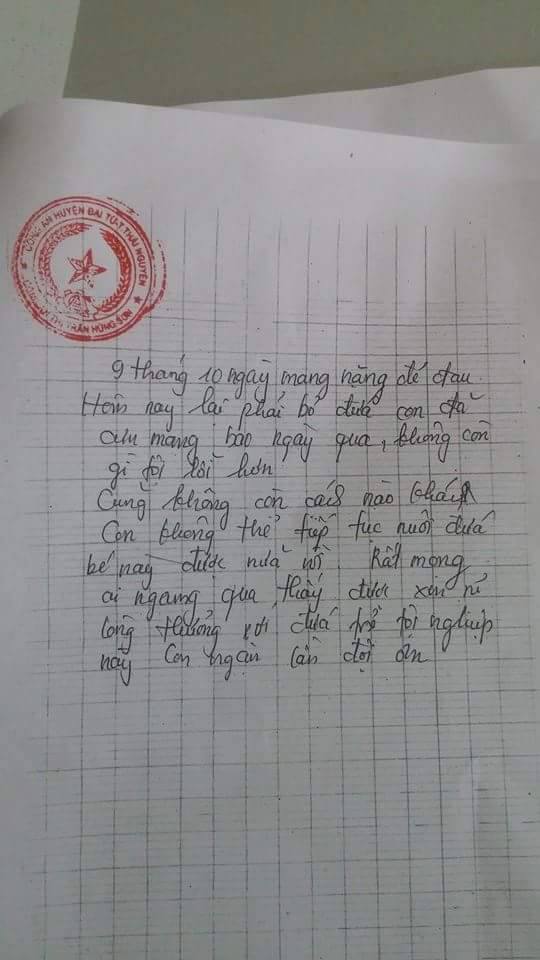 CÔNG AN HUYỆN ĐẠI TỪ-T.THÁI NGUYÊN
THỊ TRẤN HÙNG SƠN
9 tháng 10 ngày mang nặng đẻ đau.
Hôm nay lại phải bỏ đứa con đã
cưu mang bao ngày qua, không còn
gì tội lỗi hơn
Cũng không còn cách nào khác
Con không thể tiếp tục nuôi đứa
bé này được nữa rồi. Rất mong
ai ngang qua, thấy được xin rủ
lòng thương với đứa trẻ tội nghiệp
này Con ngàn lần đội ơn